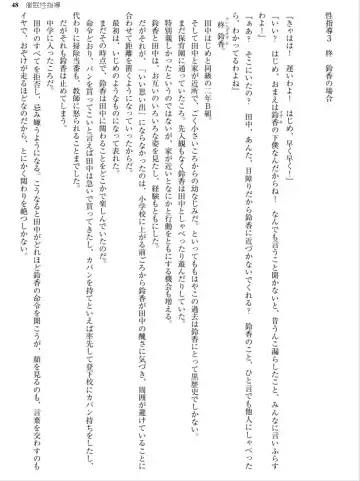 48 催眠性指導
性指導3 柊 鈴香の場合
「きゃはは! 遅いわよ! はじめ、早く早く!」
「いい? はじめ、おまえは鈴香の下僕なんだからね! なんでも言うこと聞かないと、昔うんこ漏らしたこと、みんなに言いふらす
わよ!」
「ああ? そこにいたの? 田中、あんた、目障りだから鈴香に近づかないでくれる? 鈴香のこと、ひと言でも他人にしゃべった
ら、わかってるわよね」
柊鈴香。
ひいらぎすずか
田中はじめと同級の二年B組。
そして田中と家が近所で、ごく小さいころからの幼なじみだ。といってももはやこの過去は鈴香にとって黒歴史でしかない。
まだ保育園に通っていたころ、先入観もなく鈴香は田中としゃべったり遊んだりしていた。
特別親しかったというのではないが、家が近いとなにかと行動をともにする機会も増える。
鈴香と田中は、お互いのいろいろな姿を見たし、経験もともにした。
だがそれが、「いい思い出」にならなかったのは、小学校に上がる前ごろから鈴香が田中の醜さに気づき、周囲が避けていることに
合わせて距離を置くようになっていったからだ。
最初は、いじめのようなものになって表れた。
まだその時点で、鈴香は田中に関わることをどこかで楽しんでいたのだ。
命令どおり、パンを買ってこいと言えば田中は急いで買ってきたし、カバンを持てといえば率先して登下校にカバン持ちをしたし、
代わりに掃除当番も、教師に怒られることまでした。
だがそれも鈴香は止めてしまう。
田中のすべてを拒否し、忌み嫌うようになる。こうなると田中がどれほど鈴香の命令を聞こうが、顔を見るのも、言葉を交わすのも
イヤで、おぞけが走るほどなのだから、とにかく関わりを絶つしかない。